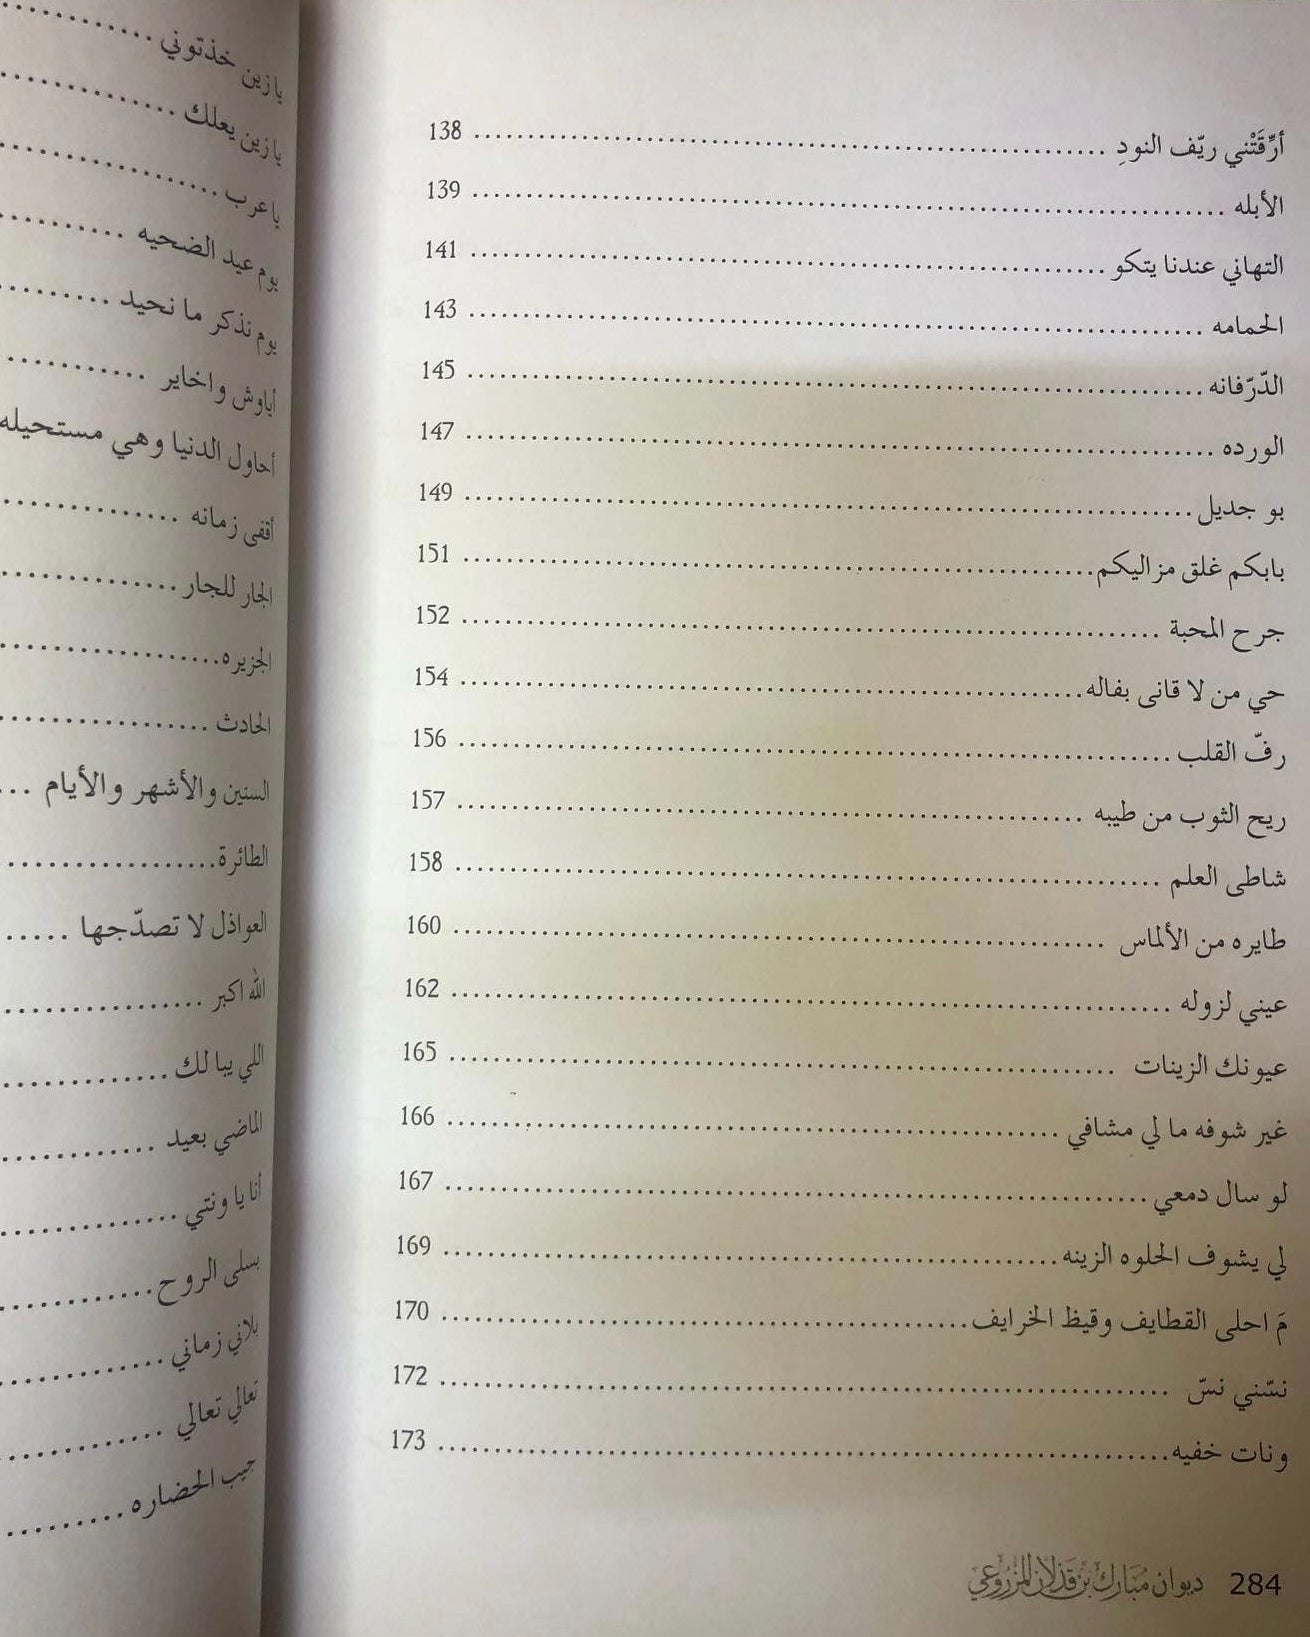 أرِّقَتْني ريّف النودِ ........ 138
الأبله ........ 139
التهاني عندنا يتكو ........ 141
الحمامه ........ 143
الدّرّفانه ........ 145
الورده ........ 147
بو جديل ........ 149
بابكم غلق مزاليكم ........ 151
جرح المحبة ........ 152
حي من لا قانى بفاله ........ 154
رفّ القلب ........ 156
ريح الثوب من طيبه ........ 157
شاطى العلم ........ 158
طايره من الألماس ........ 160
عيني لزوله ........ 162
عيونك الزينات ........ 165
غير شوفه ما لي مشافي ........ 166
لو سال دمعي ........ 167
لي يشوف الحلوه الزينه ........ 169
مَ احلى القطايف وقيظ الخرايف ........ 170
نسّني نسّ ........ 172
ونات خفيه ........ 173
284 ديوان مبارك بن قذلان المزروعي
يا زين خذتوني ........
يا زين يعلك ........
يا عرب ........
يوم عيد الضحيه ........
يوم نذكر ما نحيد ........
أياوش واخاير ........
أحاول الدنيا وهي مستحيله
أقفى زمانه ........
الجار للجار ........
الجزيره ........
الحادث ........
السنين والأشهر والأيام ...
الطائرة ........
العواذل لا تصدّجها .....
الله اكبر ........
اللي يبا لك ........
الماضي بعيد ........
أنا يا ونتي ........
بسلى الروح ........
بلاني زماني ........
تعالي تعالي ........
جيب الحضاره ........